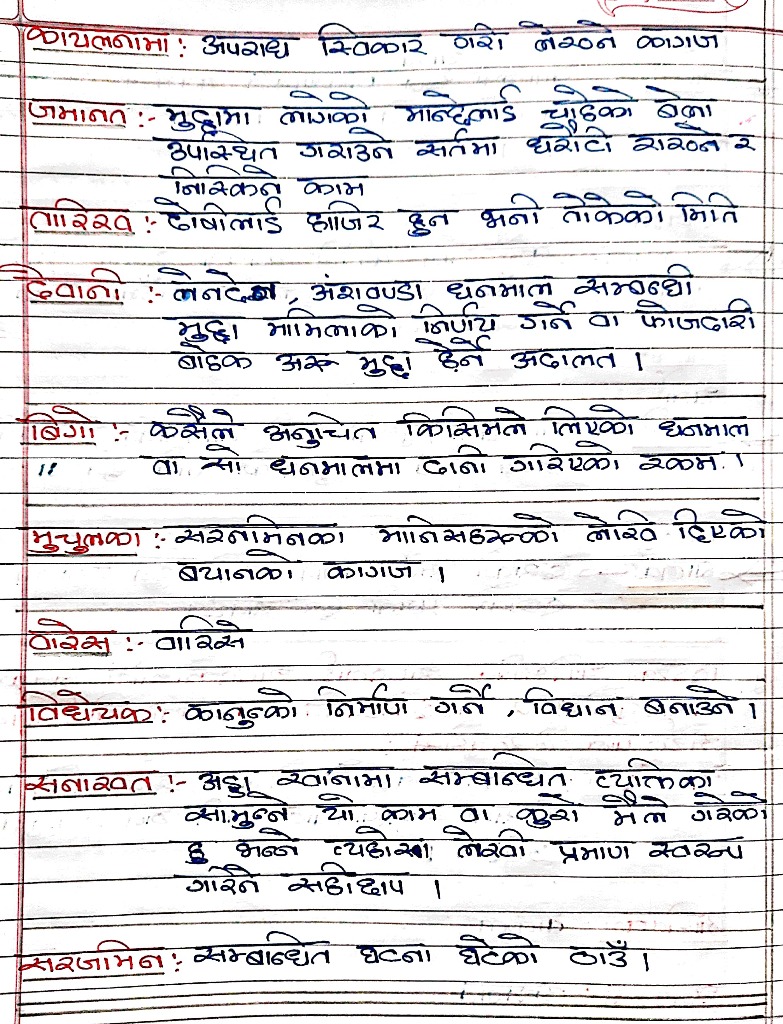 कायलनामा : अपराध स्विकार गरी लेख्ने कागज
जमानत :- मुद्दामा लागेको मान्छेलाई चाहेको बेला
उपस्थित गराउने सर्तमा धरौटी राख्ने र
निस्किने काम
तारिख :- दोषीलाई हाजिर हुन भनी तोकेको मिति
देवानी :- लेनदेन, अंशवण्डा धनमाल सम्बन्धी
मुद्दा मामिलाको निर्णय गर्ने वा फौजदारी
बाहेक अरू मुद्दा हेर्ने अदालत ।
बिगो :- कसैले अनुचित किसिमले लिएको धनमाल
" वा सो धनमालमा दावी गरिएको रकम ।
मुचुल्का :- सरजमिनका मानिसहरूको लेखि दिएको
बयानको कागज ।
वारेस :- वारिस
विधेयक : कानुनको निर्माण गर्ने, विधान बनाउने ।
सनाखत :- अड्डा खानामा सम्बन्धित व्यक्तिका
सामुन्ने यो काम वा कुरो मैले गरेको
हु भन्ने व्यहोरा लेखी प्रमाण स्वरूप
गरिने सहीछाप ।
सरजमिन : सम्बन्धित घटना घटेको ठाउँ ।